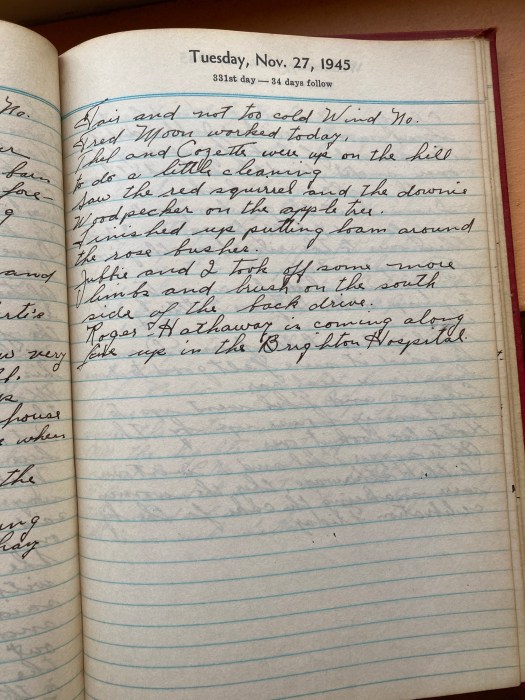 Tuesday, Nov. 27, 1945
331st day — 34 days follow
Fair and not too cold Wind No.
Fred Moon worked today.
Thel and Cozette were up on the hill
to do a little cleaning
Saw the red squirrel and the downie
Woodpecker on the apple tree.
Finished up putting loam around
the rose bushes.
and I took off some more
limbs and brush on the south
side of the back drive.
Roger Hathaway is coming along
fine up in the Brighton Hospital.
No.
er
barn
fore-
g
and
w very
house
when
the
ung